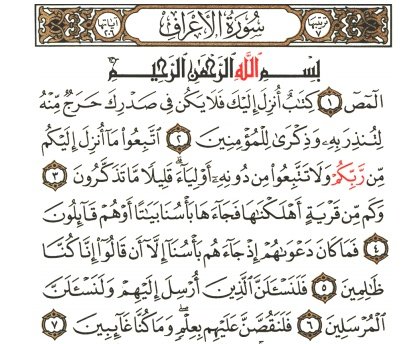 ترتيبها ٧ سورة الأعراف آياتها ٢٠٦
بسم الله الرحمن الرحيم
المٓصٓ ١ كِتَٰبٌ أُنزِلَ إِلَيْكَ فَلَا يَكُن فِى صَدْرِكَ حَرَجٌ مِّنْهُ
لِتُنذِرَ بِهِۦ وَذِكْرَىٰ لِلْمُؤْمِنِينَ ٢ ٱتَّبِعُوا۟ مَآ أُنزِلَ إِلَيْكُم
مِّن رَّبِّكُمْ وَلَا تَتَّبِعُوا۟ مِن دُونِهِۦٓ أَوْلِيَآءَ ۗ قَلِيلًا مَّا تَذَكَّرُونَ ٣
وَكَم مِّن قَرْيَةٍ أَهْلَكْنَٰهَا فَجَآءَهَا بَأْسُنَا بَيَٰتًا أَوْ هُمْ قَآئِلُونَ
٤ فَمَا كَانَ دَعْوَىٰهُمْ إِذْ جَآءَهُم بَأْسُنَآ إِلَّآ أَن قَالُوٓا۟ إِنَّا كُنَّا
ظَٰلِمِينَ ٥ فَلَنَسْـَٔلَنَّ ٱلَّذِينَ أُرْسِلَ إِلَيْهِمْ وَلَنَسْـَٔلَنَّ
ٱلْمُرْسَلِينَ ٦ فَلَنَقُصَّنَّ عَلَيْهِم بِعِلْمٍ ۖ وَمَا كُنَّا غَآئِبِينَ ٧